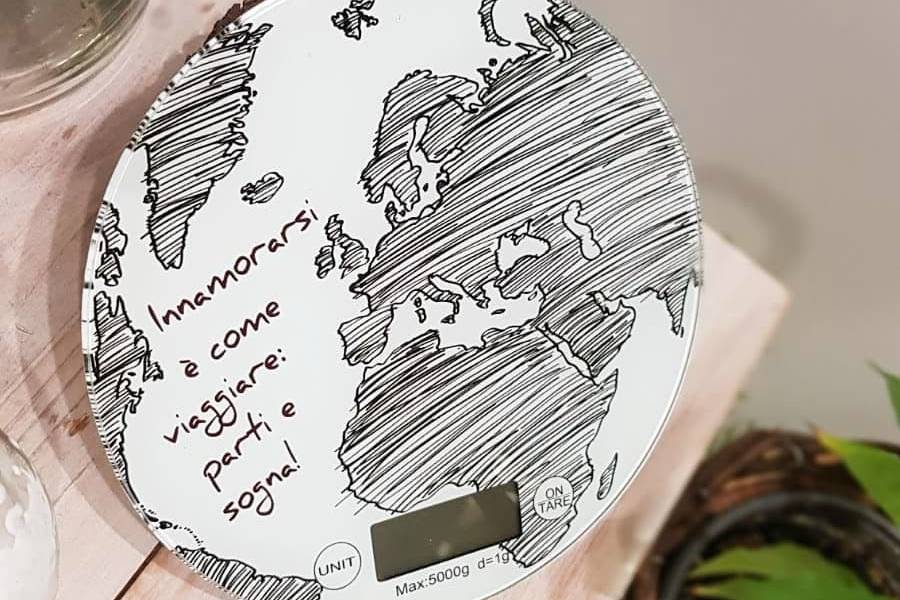 Innamorarsi
è come
viaggiare:
parti e
sogna!
UNIT
ON
TARE
Max:5000g d=1g